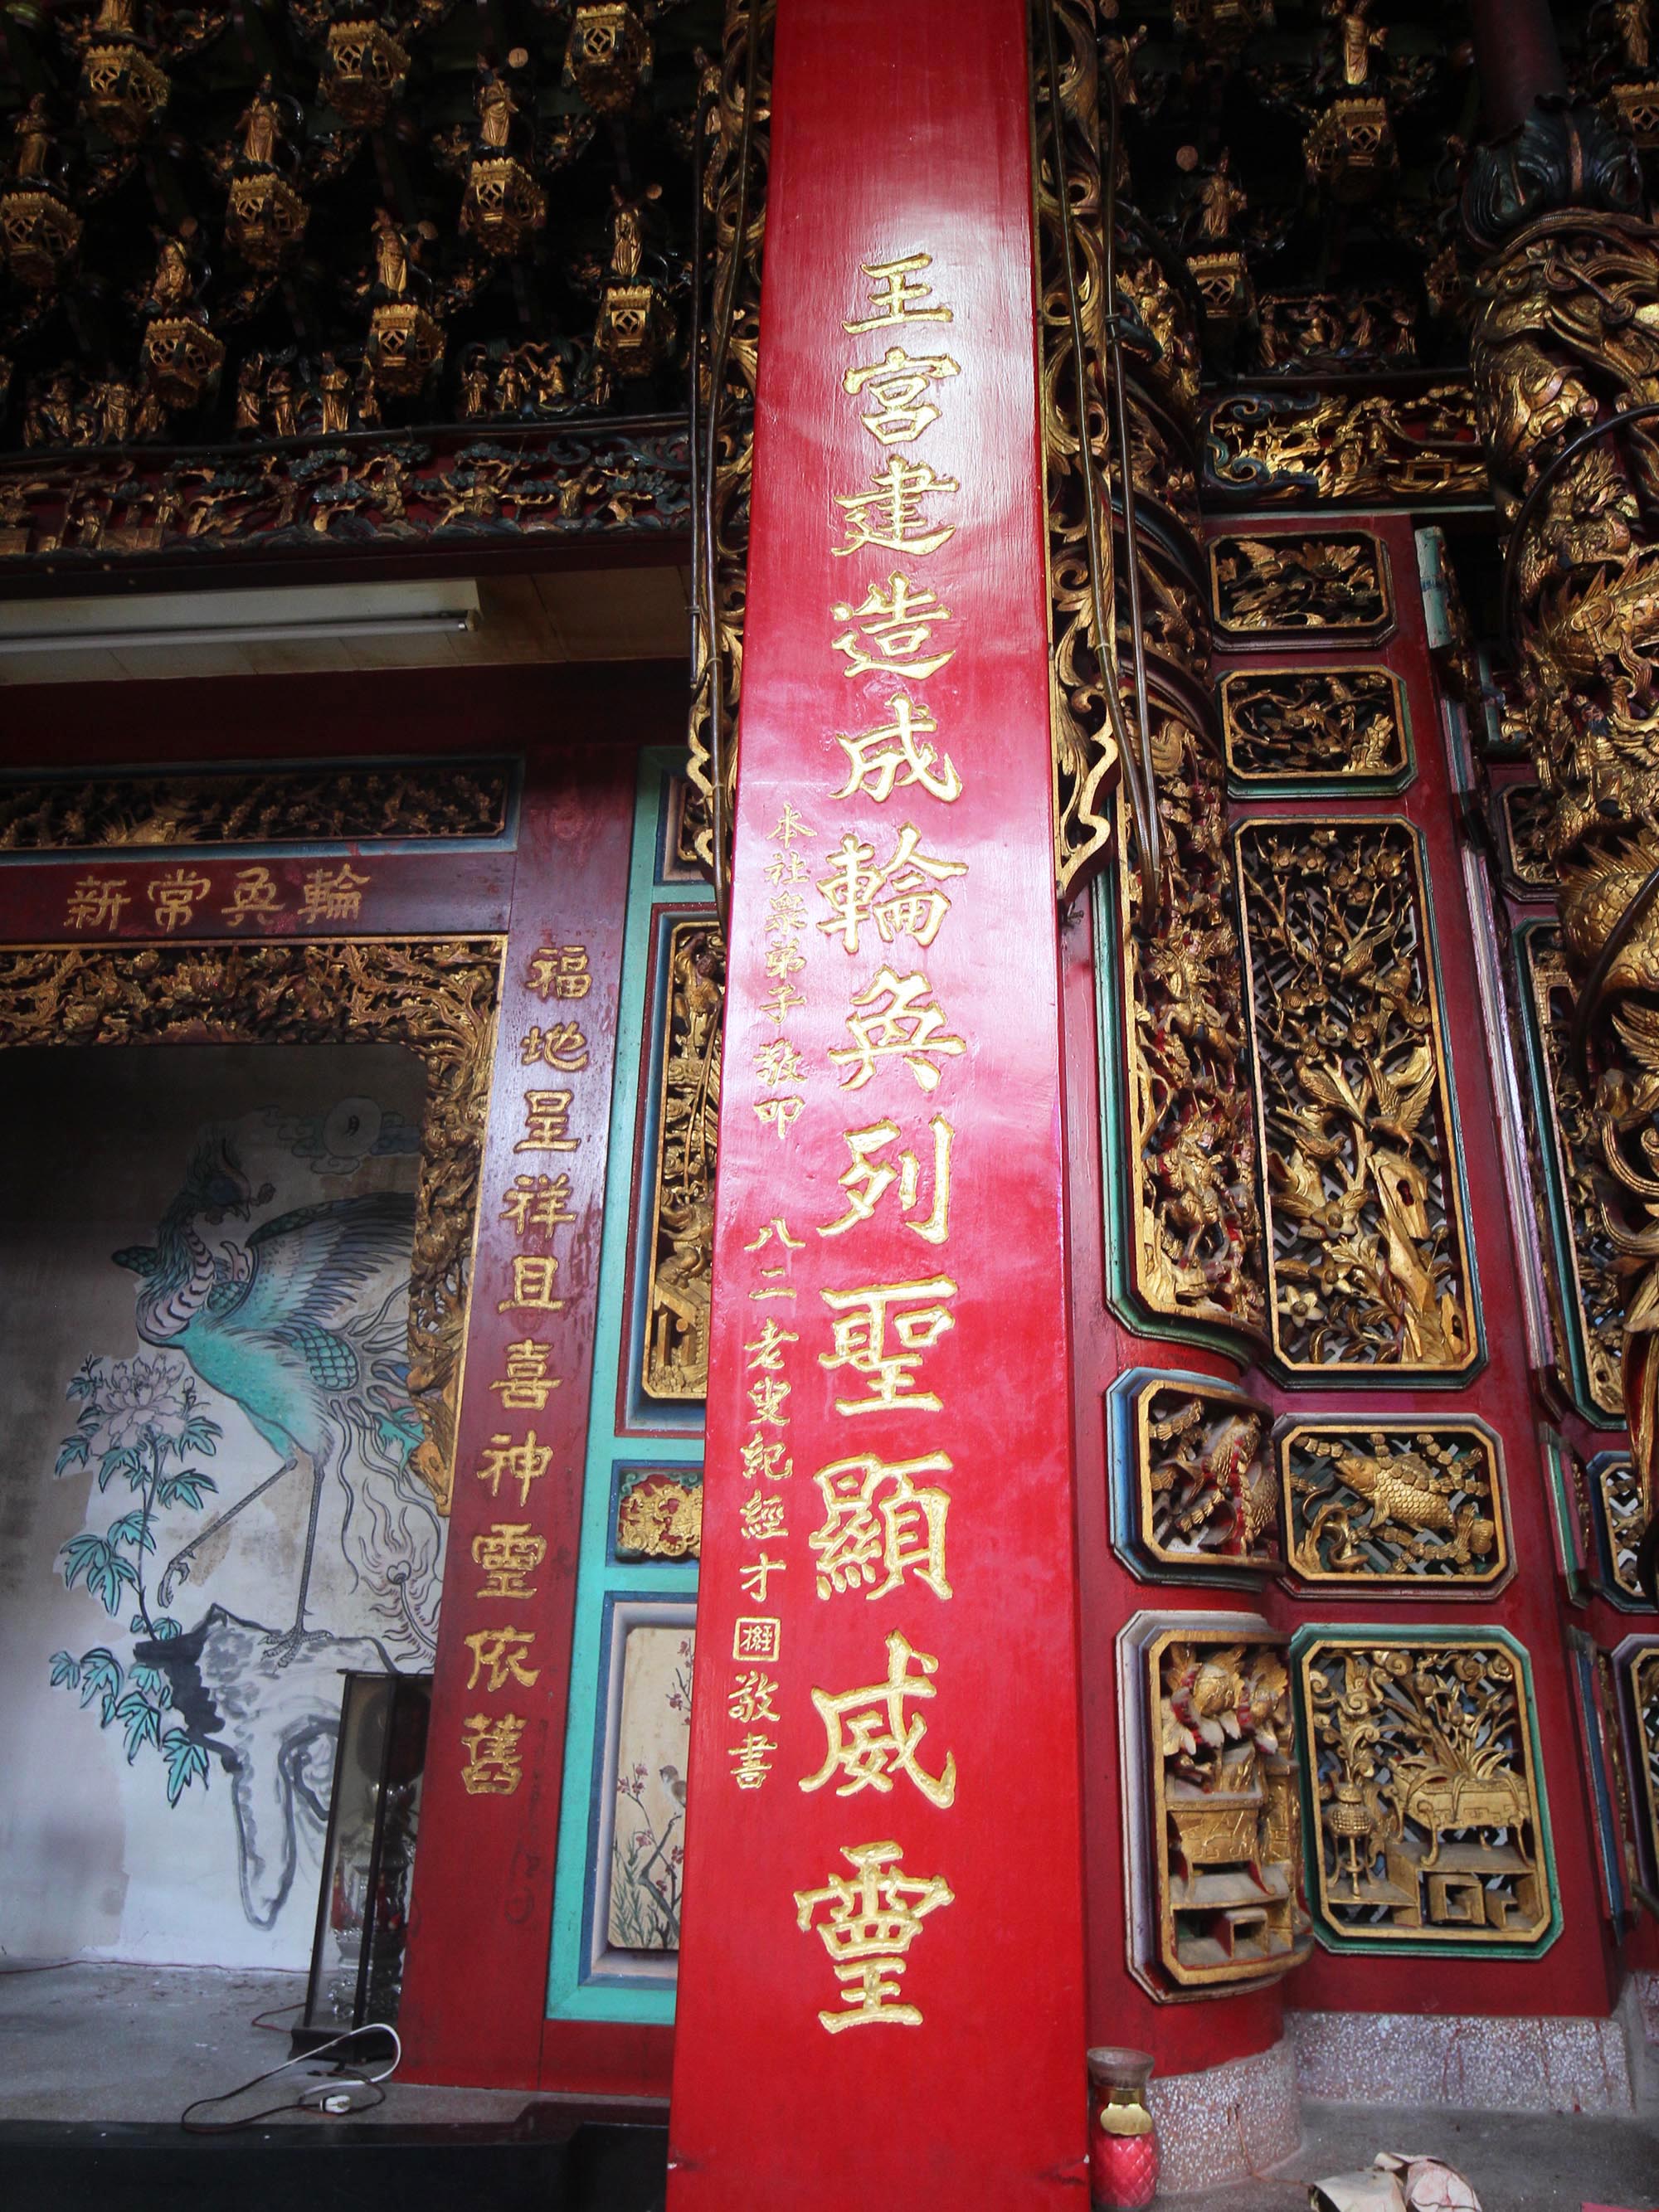 王宮建造成輪奐列聖顯威靈
本社眾弟子敬叩
八二老叟紀經才 敬書
輪奐常新
福地呈祥且喜神靈依舊
月